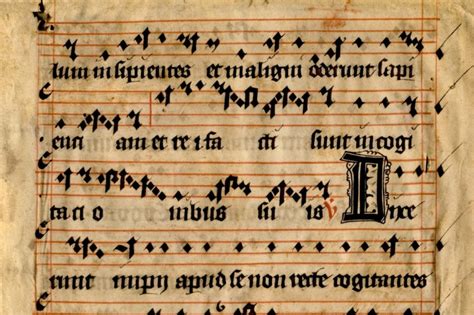 lum insipientes et maligni oderunt sapi
enci am et rei fa cti sunt in cogi
taci o nibus su is V Dixe
runt inpii apud se non recte cogitantes